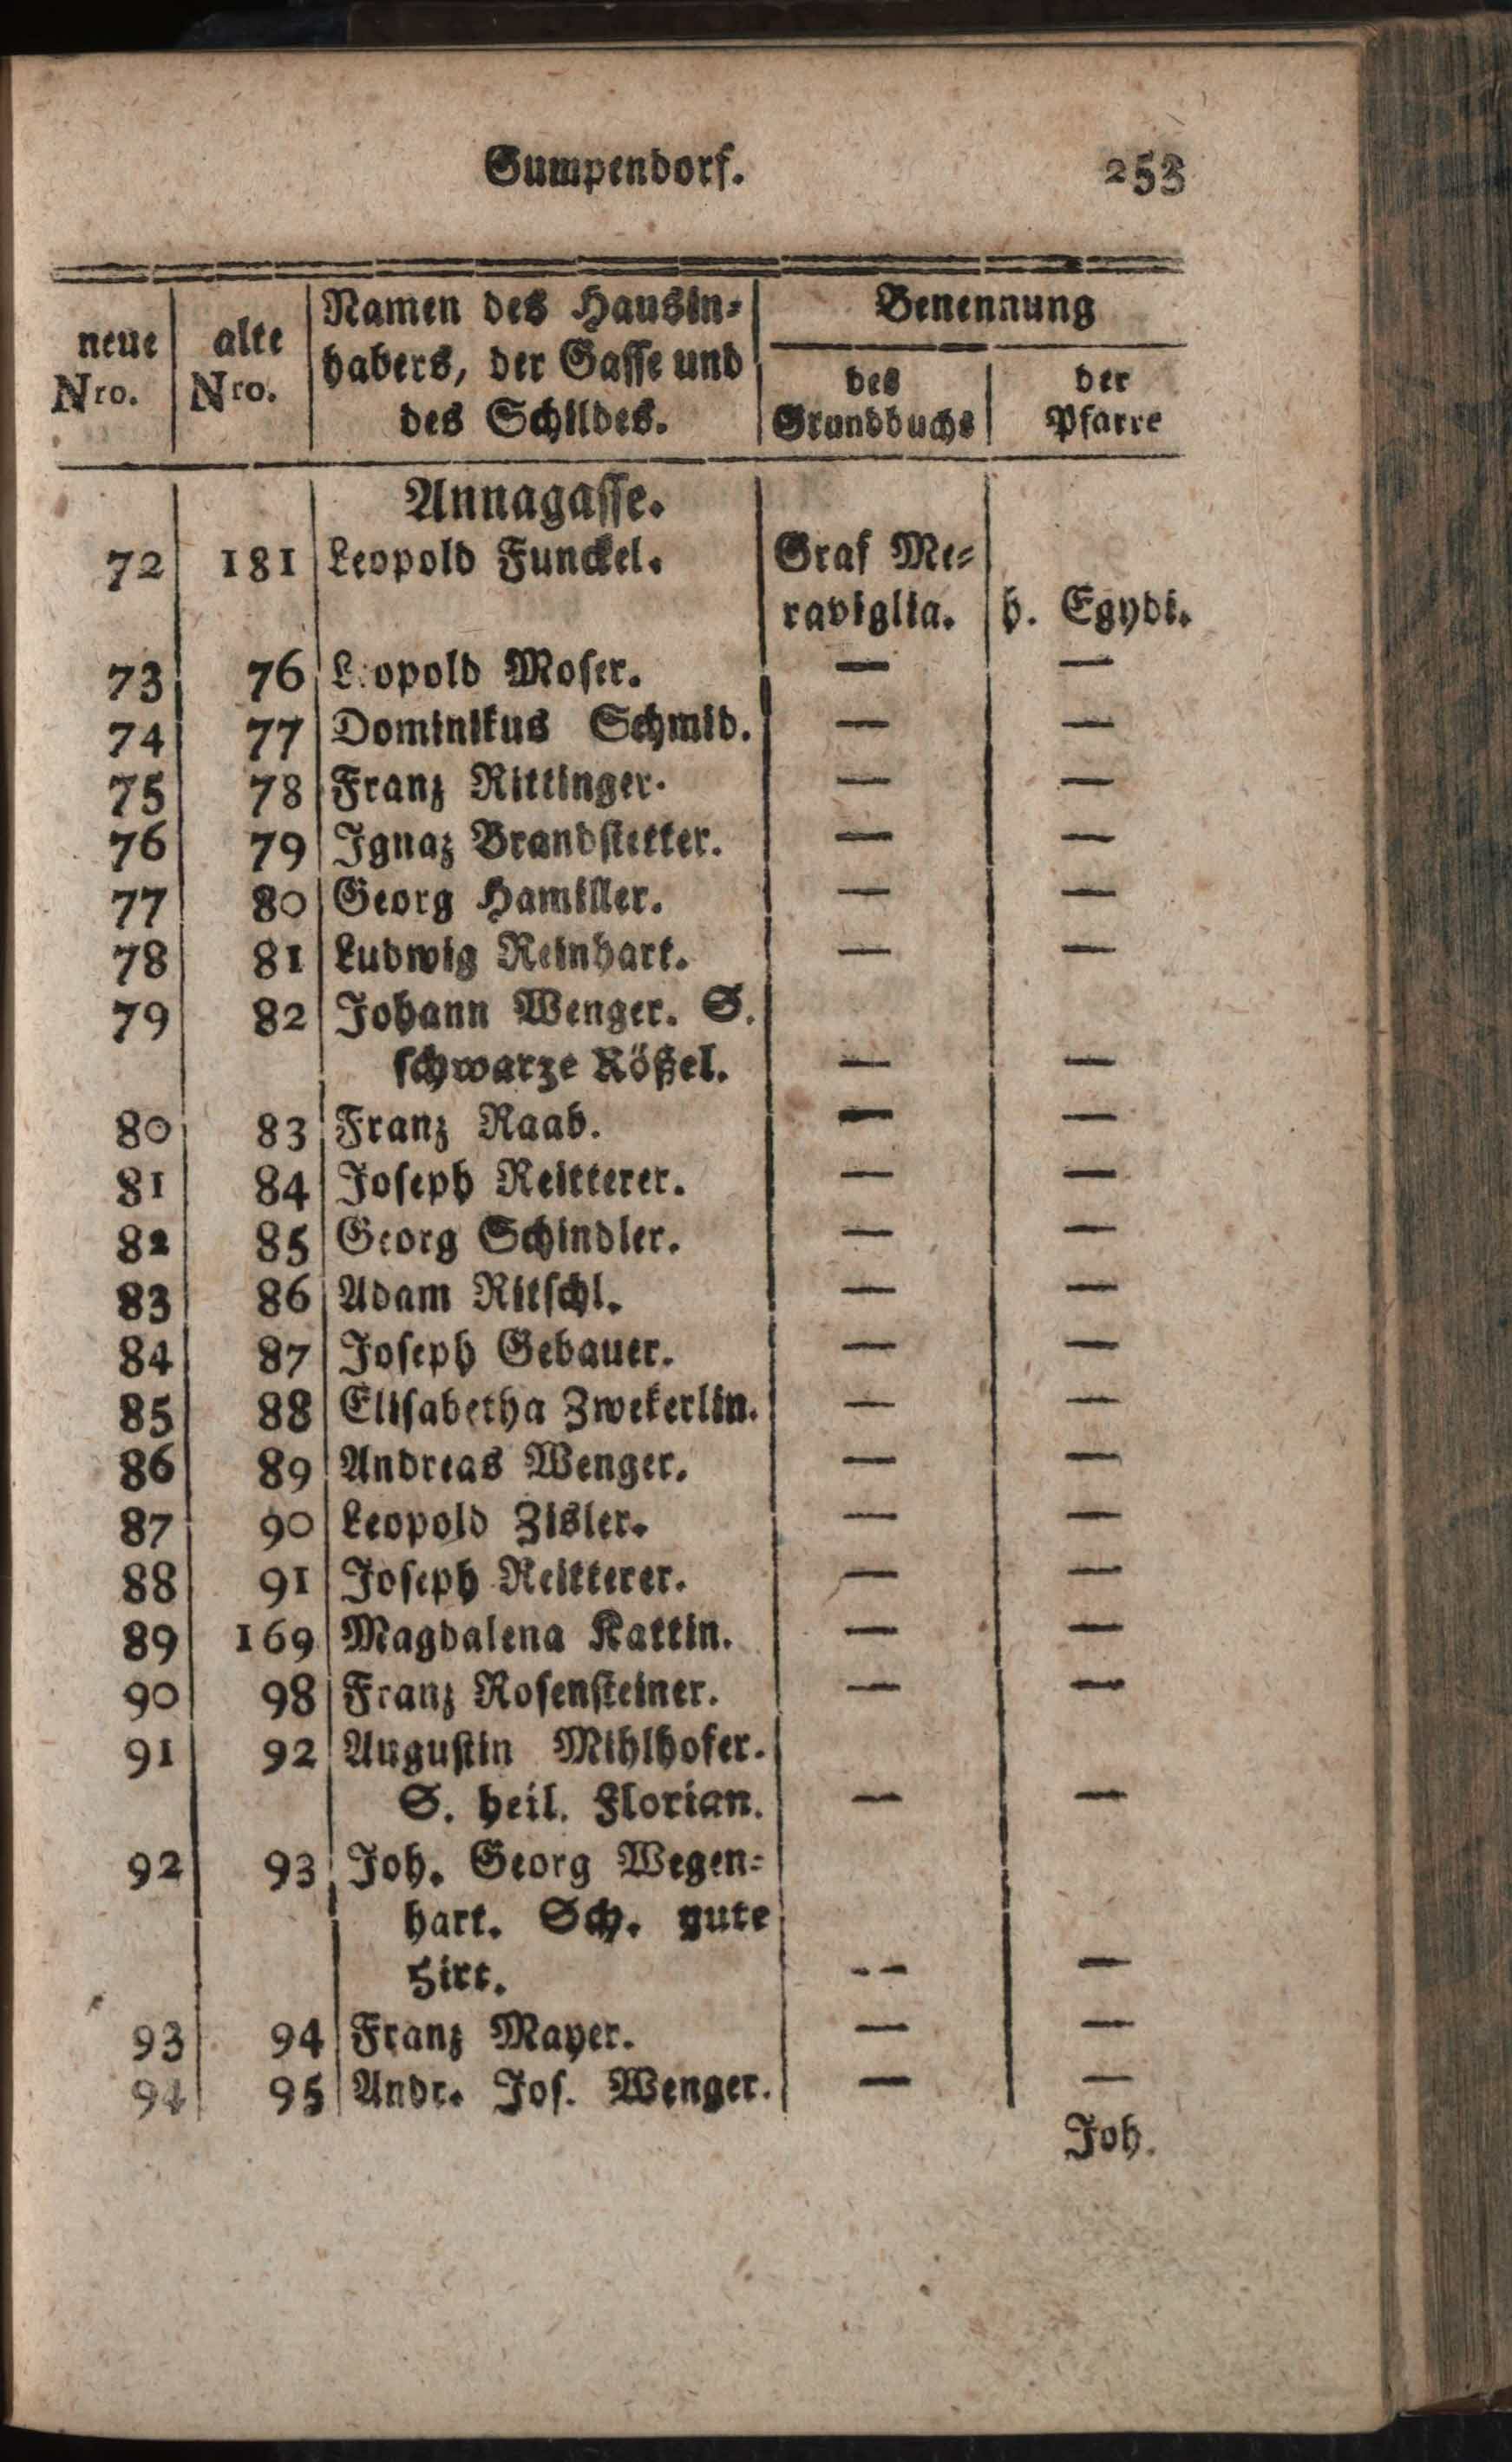 Gumpendorf. 253
neue Nro. | alte Nro. | Namen des Hausin-
habers, der Gasse und
des Schildes. | Benennung
des Grundbuchs | der Pfarre
Annagasse.
72 181 Leopold Funckel. Graf Me-
raviglia. h. Egydi.
73 76 Leopold Moser. — —
74 77 Dominikus Schmid. — —
75 78 Franz Rittinger. — —
76 79 Ignaz Brandstetter. — —
77 80 Georg Hamiller. — —
78 81 Ludwig Reinhart. — —
79 82 Johann Wenger. S.
schwarze Rößel. — —
80 83 Franz Raab. — —
81 84 Joseph Reitterer. — —
82 85 Georg Schindler. — —
83 86 Adam Ritschl. — —
84 87 Joseph Gebauer. — —
85 88 Elisabetha Zwekerlin. — —
86 89 Andreas Wenger. — —
87 90 Leopold Zisler. — —
88 91 Joseph Reitterer. — —
89 169 Magdalena Kattin. — —
90 98 Franz Rosensteiner. — —
91 92 Augustin Mihlhofer.
S. heil. Florian. — —
92 93 Joh. Georg Wegen-
hart. Sch. gute
Hirt. — —
93 94 Franz Mayer. — —
94 95 Andr. Jos. Wenger. — —
Joh.